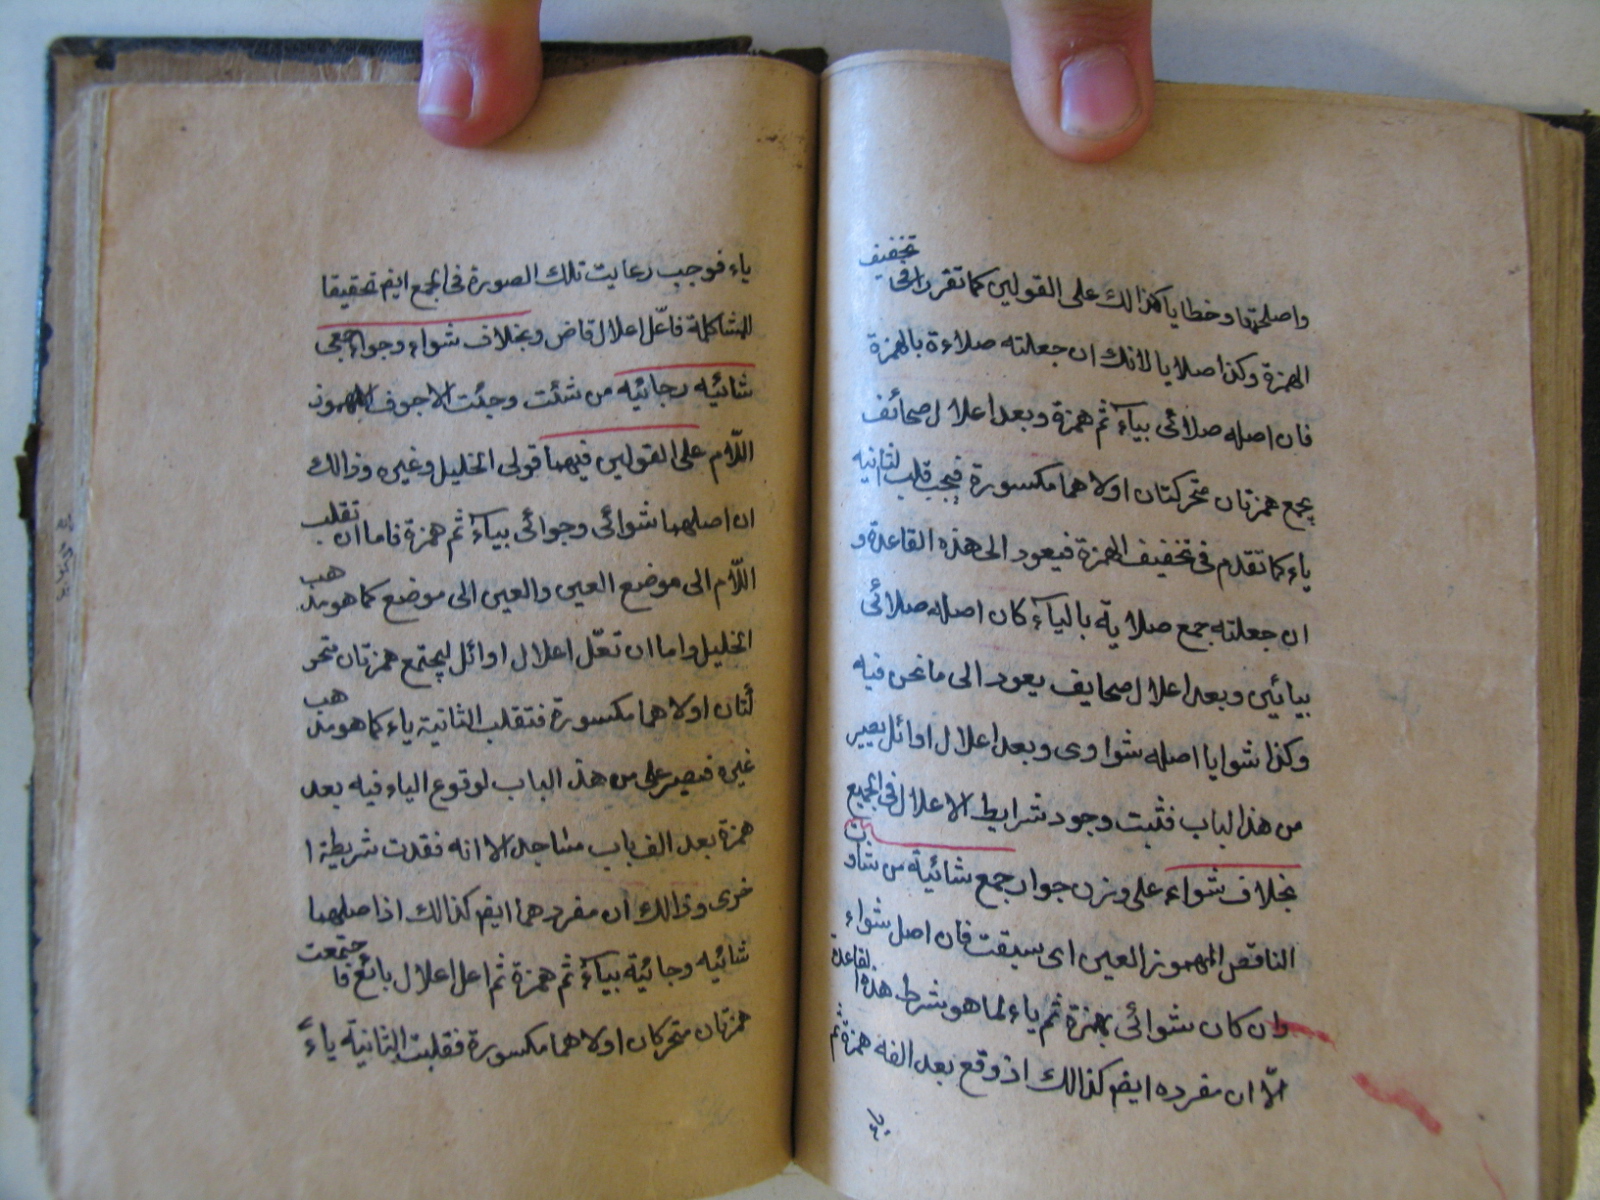 واصلحتها وخطايا كذالك على القولين كما تقرر فى تخفيف
الهمزة وكذا صلايا لانك ان جعلته صلاءة بالهمزة
فان اصله صلائى بياء ثم همزة وبعد اعلال صحائف
يجمع همزتان متحركتان اولاهما مكسورة فيجب قلب الثانيه
ياء كما تقدم فى تخفيف الهمزة فيعود الى هذه القاعدة و
ان جعلته جمع صلاية بالياء كان اصله صلائى
بيائين وبعد اعلال صحايف يعود الى ما نحن فيه
وكذا شوايا اصله شواوى وبعد اعلال اوائل يصير
من هذا لباب فثبت وجود شرايط الاعلال فى الجميع
بخلاف شواء على وزن جوار جمع شائية من شاو
الناقص المهموز العين اى سبقت فان اصل شواء
وان كان شوائى بهمزة ثم ياء لما هو شرط هذه القاعدة
الّا ان مفرده ايضا كذالك اذ وقع بعد الفه همزة ثم
ياء فوجب رعايت تلك الصورة فى الجمع ايضا تحقيقا
للمشاكلة فاعّل اعلال قاض وبخلاف شواء وجواء جمعى
شائيه وجائيه من شئت وجئت الاجوف المهموز
اللّام على القولين فيهما قولى الخليل وغيره وذالك
ان اصلهما شوائى وجوائى بياء ثم همزة فاما ان تقلب
اللّام الى موضع العين والعين الى موضع كما هو مذهب
الخليل واما ان تعّل اعلال اوائل ليجتمع همزتان متحر
كتان اولاهما مكسورة فتقلب الثانية ياء كما هو مذهب
غيره فيصير على من هذ الباب لوقوع الياء فيه بعد
همزة بعد الف باب مساجد الا انه فقدت شريطة ا
خرى وذالك ان مفردهما ايضا كذالك اذا صلهما
شائيه وجائية بياء ثم همزة ثم اعل اعلال بائع فا جتمعت
همزتان متحركان اولاهما مكسورة فقلبت الثانية ياءً